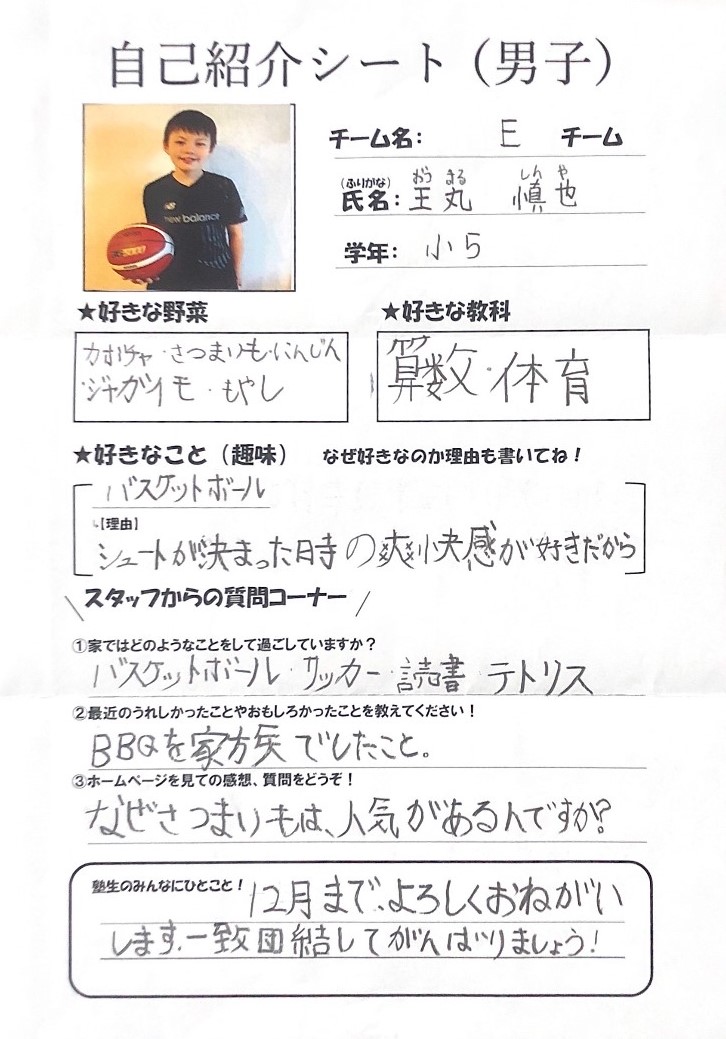 自己紹介シート（男子）
チーム名： E チーム
new balance
（ふりがな） おう まる しん や
氏名：王丸 慎也
学年：小5
★好きな野菜 ★好きな教科
カボチャ・さつまいも・にんじん
ジャガイモ・もやし
算数・体育
★好きなこと（趣味） なぜ好きなのか理由も書いてね！
バスケットボール
【理由】
シュートが決まった時の爽快感が好きだから
スタッフからの質問コーナー
①家ではどのようなことをして過ごしていますか？
バスケットボール・サッカー・読書・テトリス
②最近のうれしかったことやおもしろかったことを教えてください！
BBQを家族でしたこと。
③ホームページを見ての感想、質問をどうぞ！
なぜさつまいもは、人気があるんですか?
塾生のみんなにひとこと！ 12月まで、よろしくおねがい
します。一致団結してがんばりましょう!